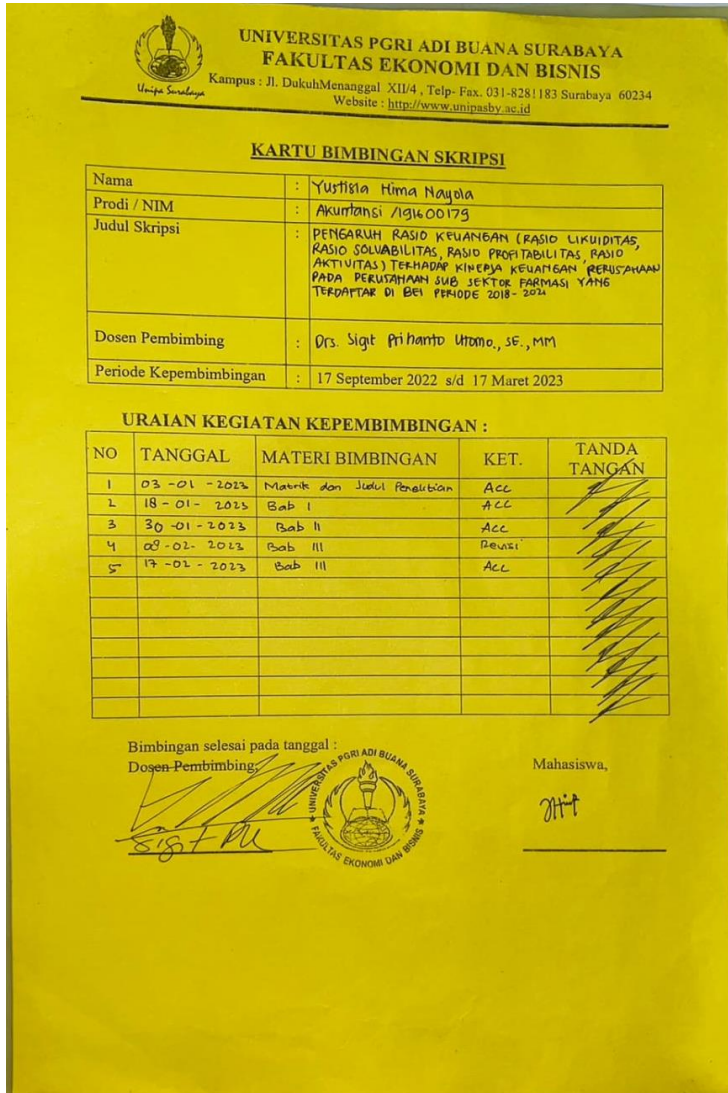 UNIVERSITAS PGRI ADI BUANA SURABAYA
FAKULTAS EKONOMI DAN BISNIS
Kampus : Jl. DukuhMenanggal XII/4 , Telp- Fax. 031-8281183 Surabaya 60234
Website : http://www.unipasby.ac.id
Unipa Surabaya
KARTU BIMBINGAN SKRIPSI
Nama : Yustisia Hima Nayola
Prodi / NIM : Akuntansi /191600179
Judul Skripsi : PENGARUH RASIO KEUANGAN (RASIO LIKUIDITAS,
RASIO SOLVABILITAS, RASIO PROFITABILITAS, RASIO
AKTIVITAS) TERHADAP KINERJA KEUANGAN PERUSAHAAN
PADA PERUSAHAAN SUB SEKTOR FARMASI YANG
TERDAFTAR DI BEI PERIODE 2018-2021
Dosen Pembimbing : Drs. Sigit Prihanto Utomo., SE., MM
Periode Kepembimbingan : 17 September 2022 s/d 17 Maret 2023
URAIAN KEGIATAN KEPEMBIMBINGAN :
NO TANGGAL MATERI BIMBINGAN KET. TANDA
TANGAN
1 03 -01 -2023 Matrik dan Judul Penelitian Acc
2 18 - 01 - 2023 Bab I ACC
3 30 -01 - 2023 Bab II Acc
4 09 -02- 2023 Bab III Revisi
5 17 -02 - 2023 Bab III Acc
Bimbingan selesai pada tanggal :
Dosen Pembimbing, Mahasiswa,
UNIVERSITAS PGRI ADI BUANA SURABAYA
FAKULTAS EKONOMI DAN BISNIS
Sigit PU